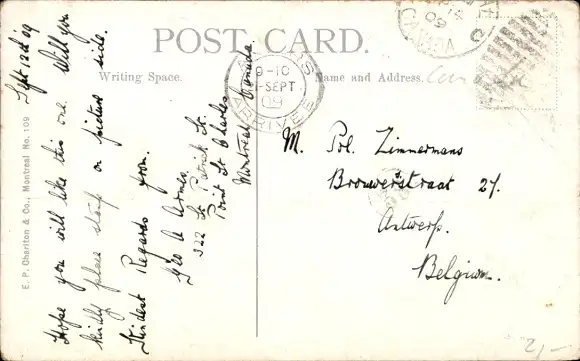 POST CARD.
Writing Space.
Name and Address.
Sept 12th 09
Hope you will like this one. Will you
kindly place stamp on picture side.
Kindest Regards
Geo A
322 St Patrick St.
Point St Charles
Montreal Canada
M. Pol. Zimmermans
Brouwerstraat 27.
Antwerp.
Belgium.
E. P. Charlton & Co., Montreal No. 109
09
CANADA
9-10
SEPT
09
ARRIVEE
2/-